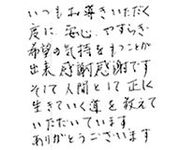 いつもお導きいただく
度に、安心、やすらぎ
希望の気持をもつことが
出来感謝感謝です
そして人間として正しく
生きていく道を教えて
いただいています
ありがとうございます